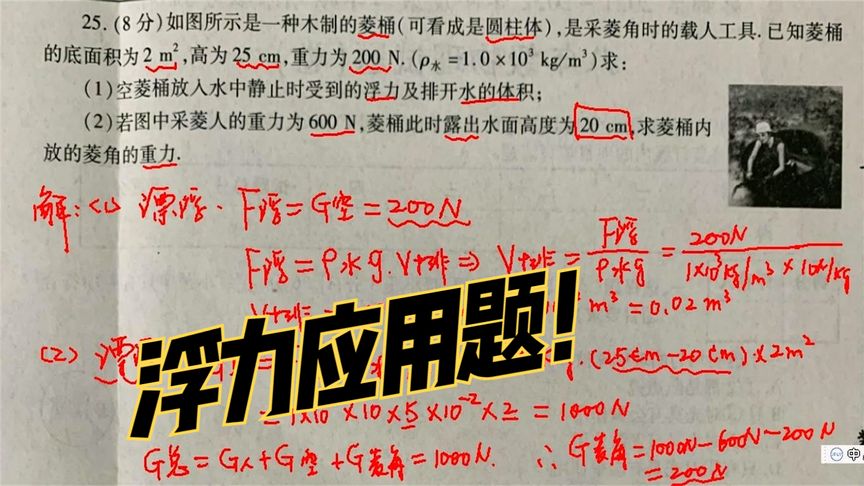 25.(8分)如图所示是一种木制的菱桶(可看成是圆柱体),是采菱角时的载人工具.已知菱桶
的底面积为2 m²,高为25 cm,重力为200 N.(ρ水=1.0×10³ kg/m³)求:
(1)空菱桶放入水中静止时受到的浮力及排开水的体积;
(2)若图中采菱人的重力为600 N,菱桶此时露出水面高度为20 cm,求菱桶内
放的菱角的重力.
解:<1> 漂浮. F浮=G空=200N
F浮=ρ水g.V排⇒ V排=F浮/ρ水g=200N/1×10³kg/m³×10N/kg
V排 m³=0.02m³
(2) 漂 .(25cm-20cm)×2m²
浮力应用题!
=1×10 ×10×5×10⁻²×2=1000N
G总=G人+G空+G菱角=1000N. ∴G菱角=1000N-600N-200N
=200N
中